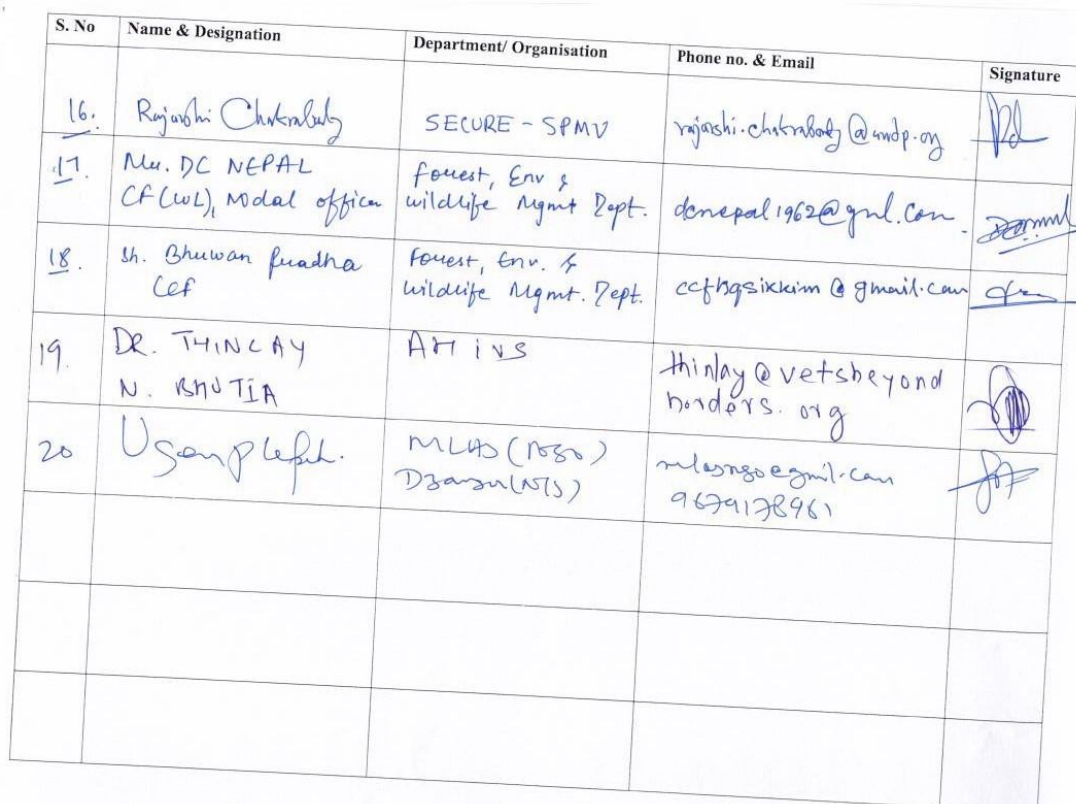 S. No Name & Designation Department/ Organisation Phone no. & Email Signature
16. Rajarshi Chakraborty SECURE - SPMU rajarshi.chakraborty@undp.org
17. Mr. DC NEPAL Forest, Env &
CF(WL), Nodal officer wildlife Mgmt Dept. dcnepal1962@gml.com
18. Sh. Bhuwan Pradhan Forest, Env. &
CCF wildlife Mgmt. Dept. ccfhqsikkim@gmail.com
19. DR. THINLAY AH & VS thinlay@vetsbeyond
N. BHUTIA borders.org
20 MLAS (NGO) mlasngo@gmil.com
Dzongu (N/S) 9679178961